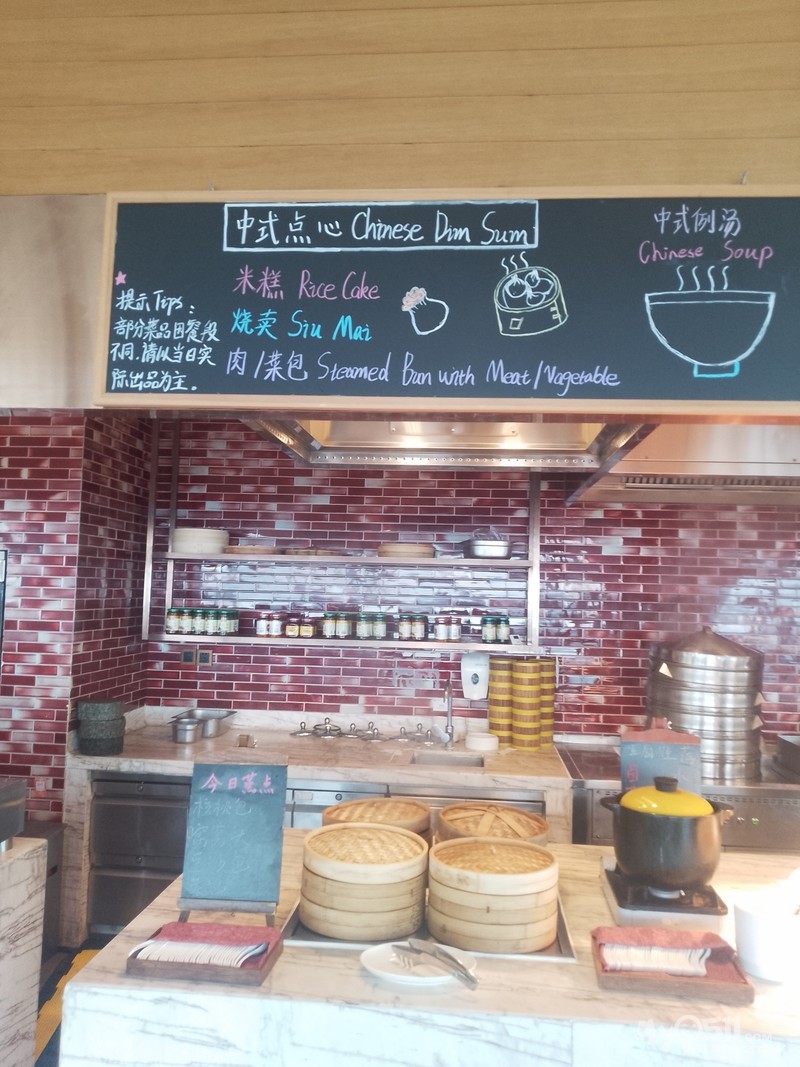 中式点心 Chinese Dim Sum
米糕 Rice Cake
烧卖 Siu Mai
肉/菜包 Steamed Bun with Meat/Vagetable
提示Tips:
部分菜品因餐段
不同,请以当日实
际出品为主。
中式例汤
Chinese Soup
今日蒸点